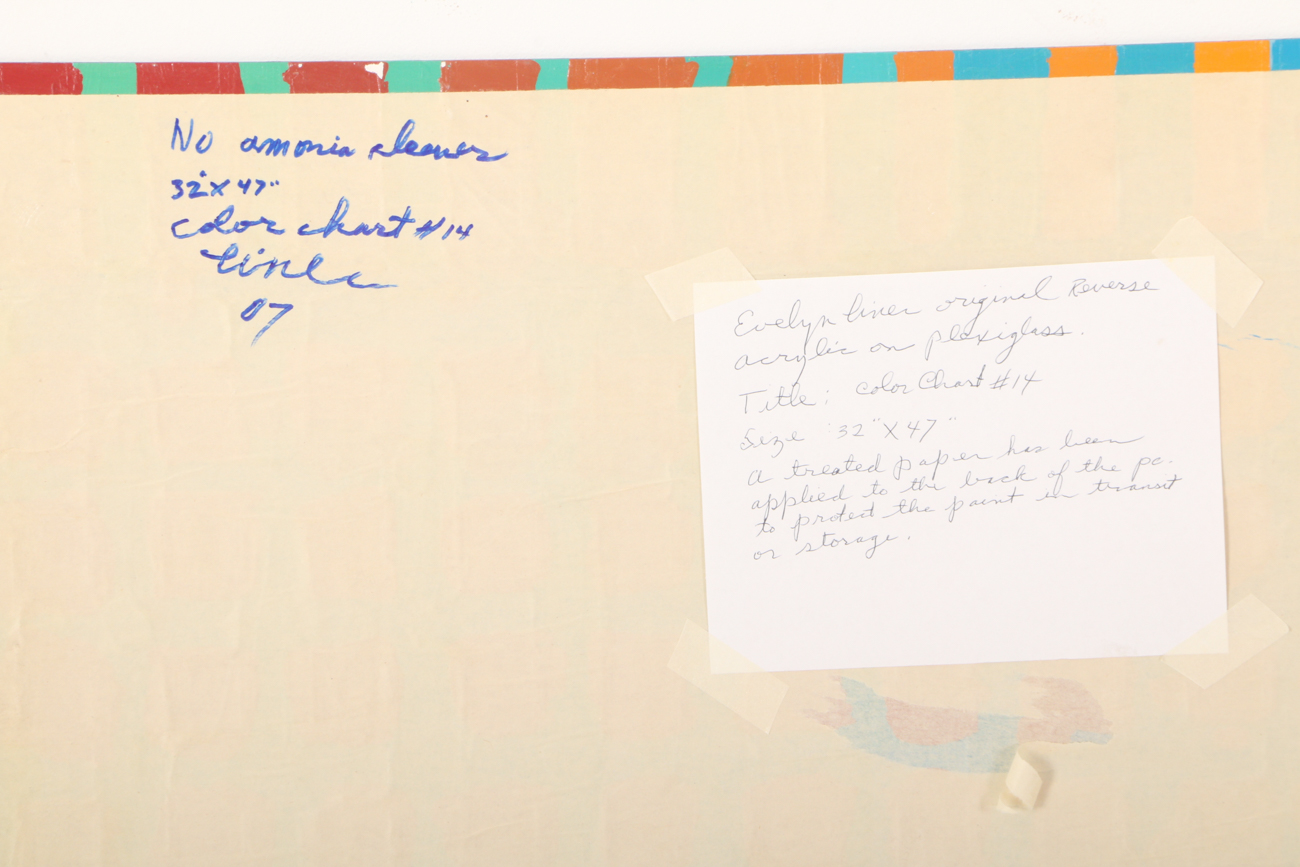 No amonia cleaner
32"X 47"
color chart #14
liner
07
Evelyn liner original Reverse
acrylic on plexiglass.
Title: Color Chart #14
Size 32" X 47"
a treated paper has been
applied to the back of the pc.
to protect the paint in transit
or storage.